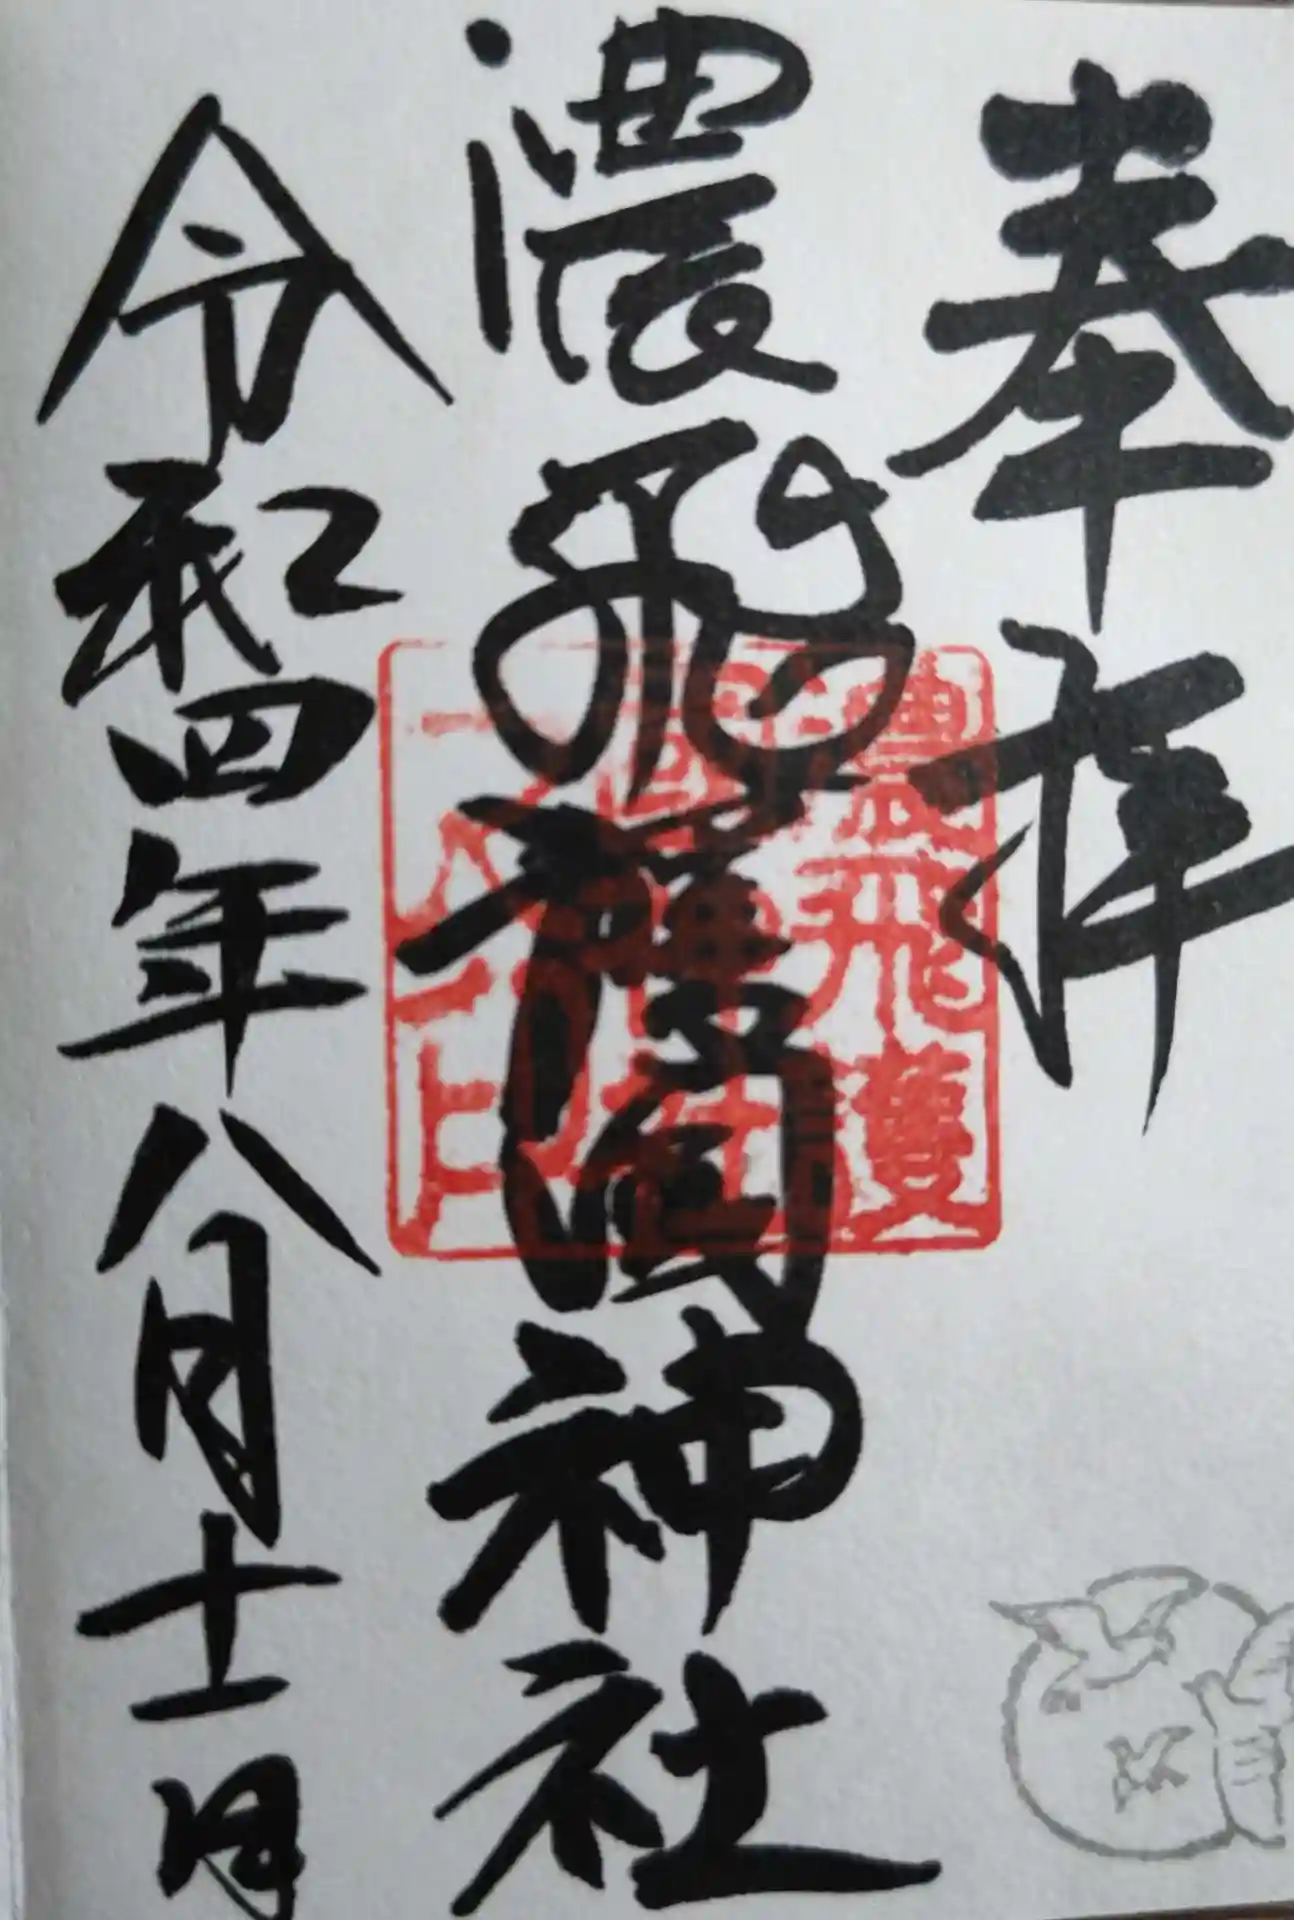 奉拝
濃飛護國神社
令和四年八月十一日
濃飛護
國神社